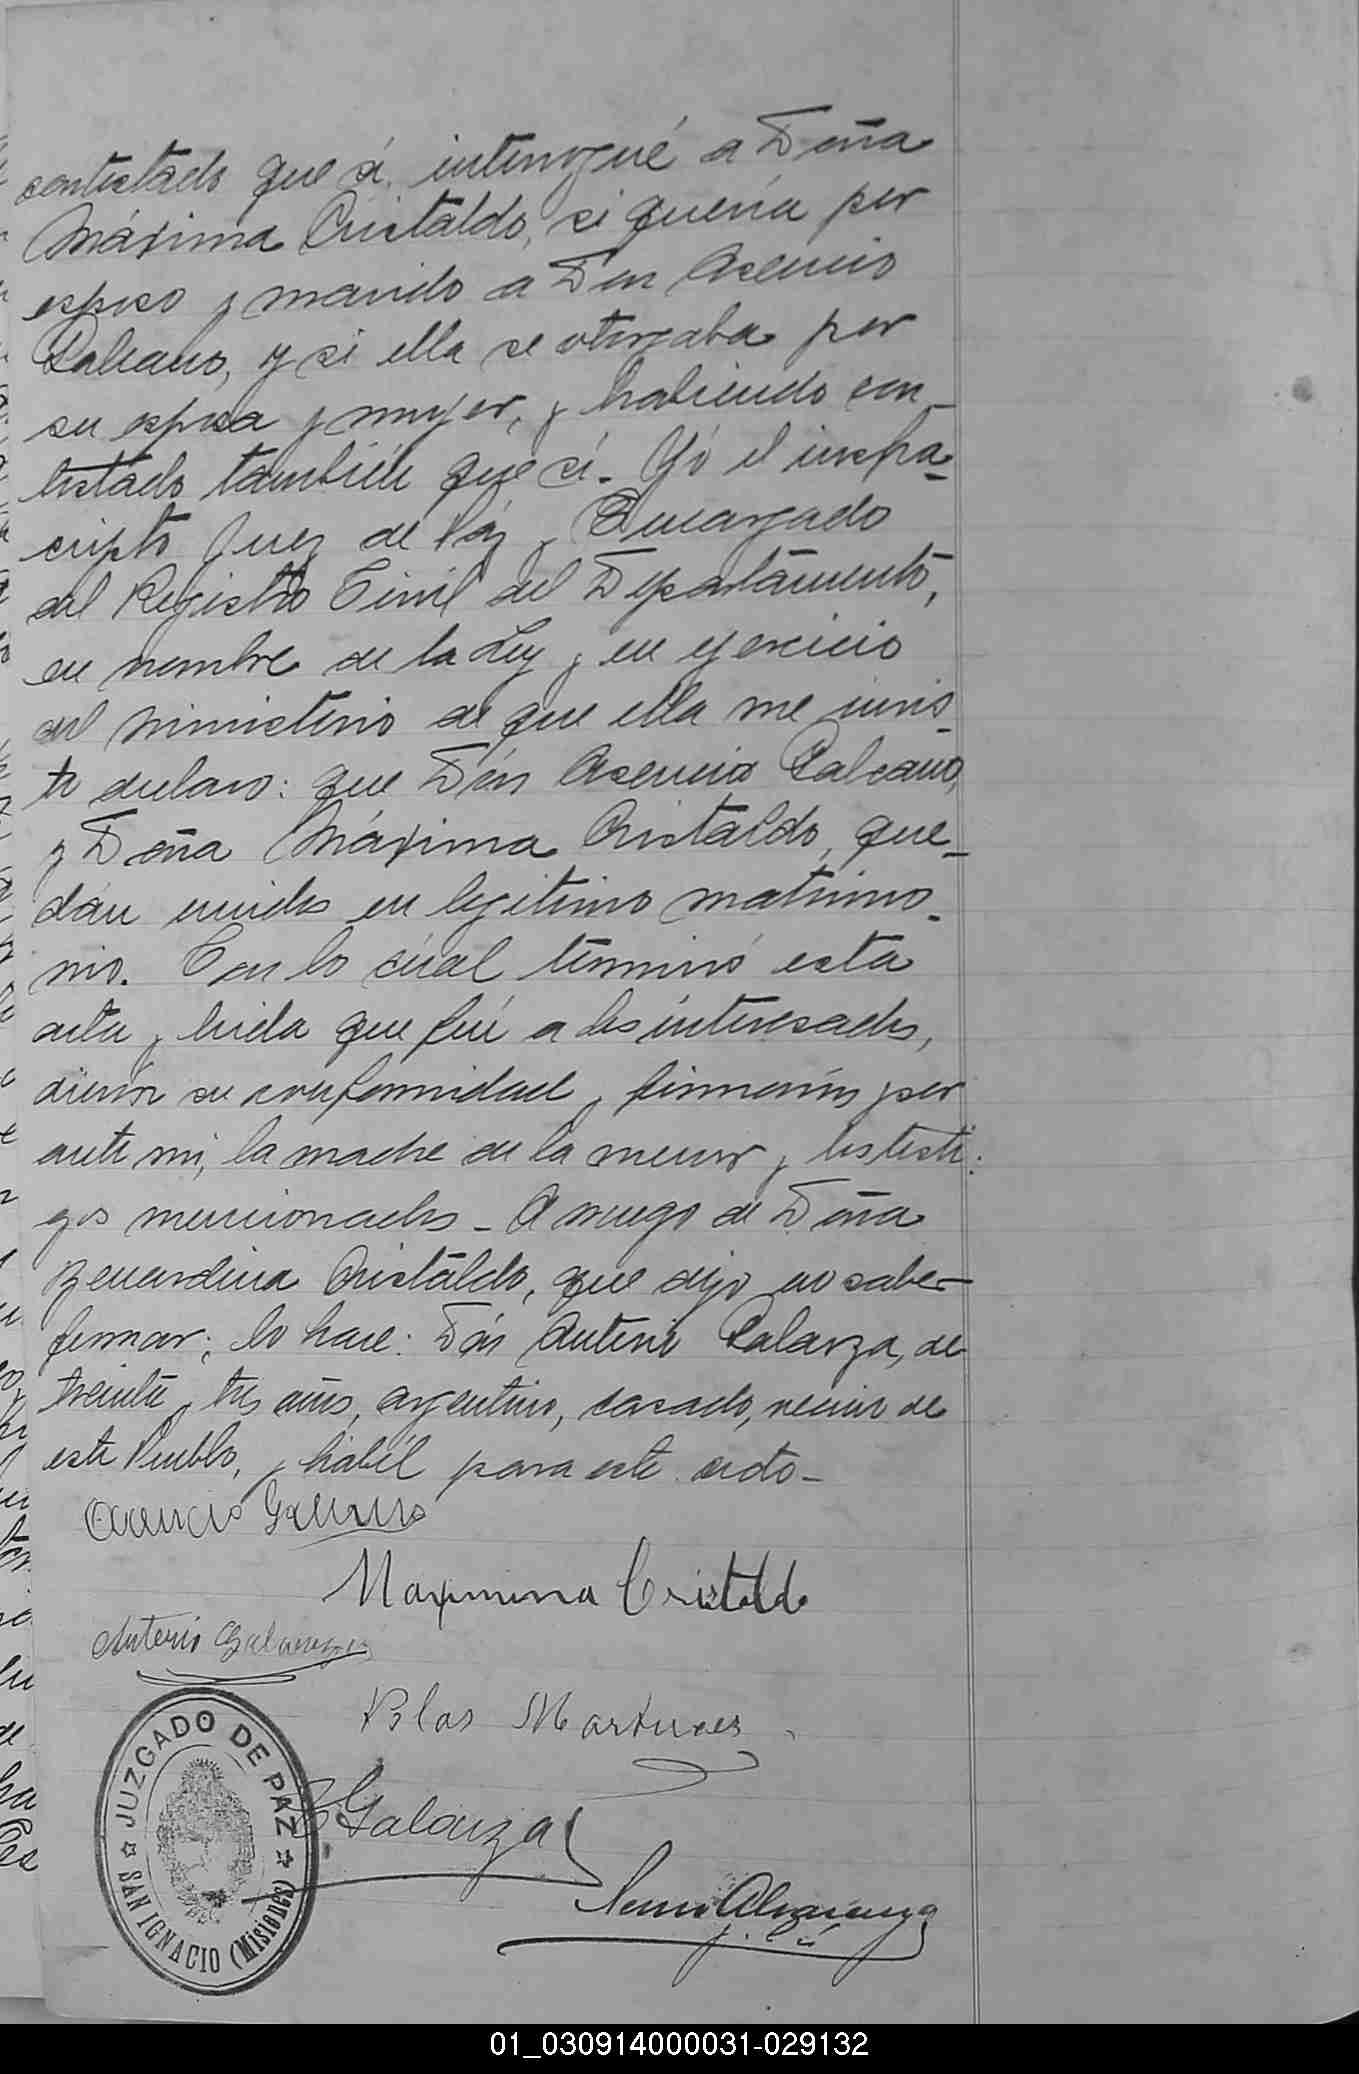 contestado que sí, interrogué a Doña
Máxima Cristaldo, si quería por
esposo y marido a Don Asencio
Galeano, y si ella se otorgaba por
su esposa y mujer, y habiendo con_
testado también que sí. Yó el infra_
cripto Juez de Páz y Encargado
del Registro Civil del Departamento,
en nombre de la Ley y en ejercicio
del ministerio de que ella me invis_
te declaro: que Dón Asencio Galeano,
y Doña Máxima Cristaldo, que_
dán unidos en legitimo matrimo_
nio. Con lo cúal terminó esta
acta y leida que fué a los interesados,
dieron su conformidad y firmarón por
ante mi, la madre de la menor y los testi:
gos mencionados_ A ruego de Doña
Benardina Cristaldo, que dijo no saber
firmar; lo hace: Dón Anterio Galarza, de
treinta y tres años, argentino, casado, vecino de
este Pueblo, y hábil para este acto_
Acencio Galeano
Maximina Cristaldo
Anterio Galarza
Blas Martines
Galarza
JUZGADO DE PAZ
SAN IGNACIO (Misiones)
01_030914000031-029132